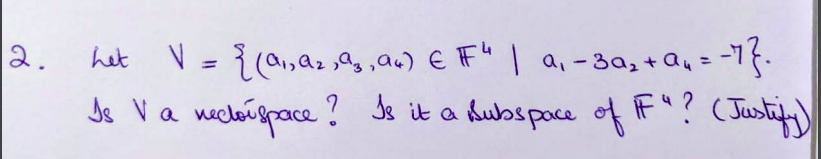 2. Let V = {(a₁, a₂, a₃, a₄) ∈ 𝔽⁴ | a₁ - 3a₂ + a₄ = -7}.
Is V a vectorspace? Is it a subspace of 𝔽⁴? (Justify)